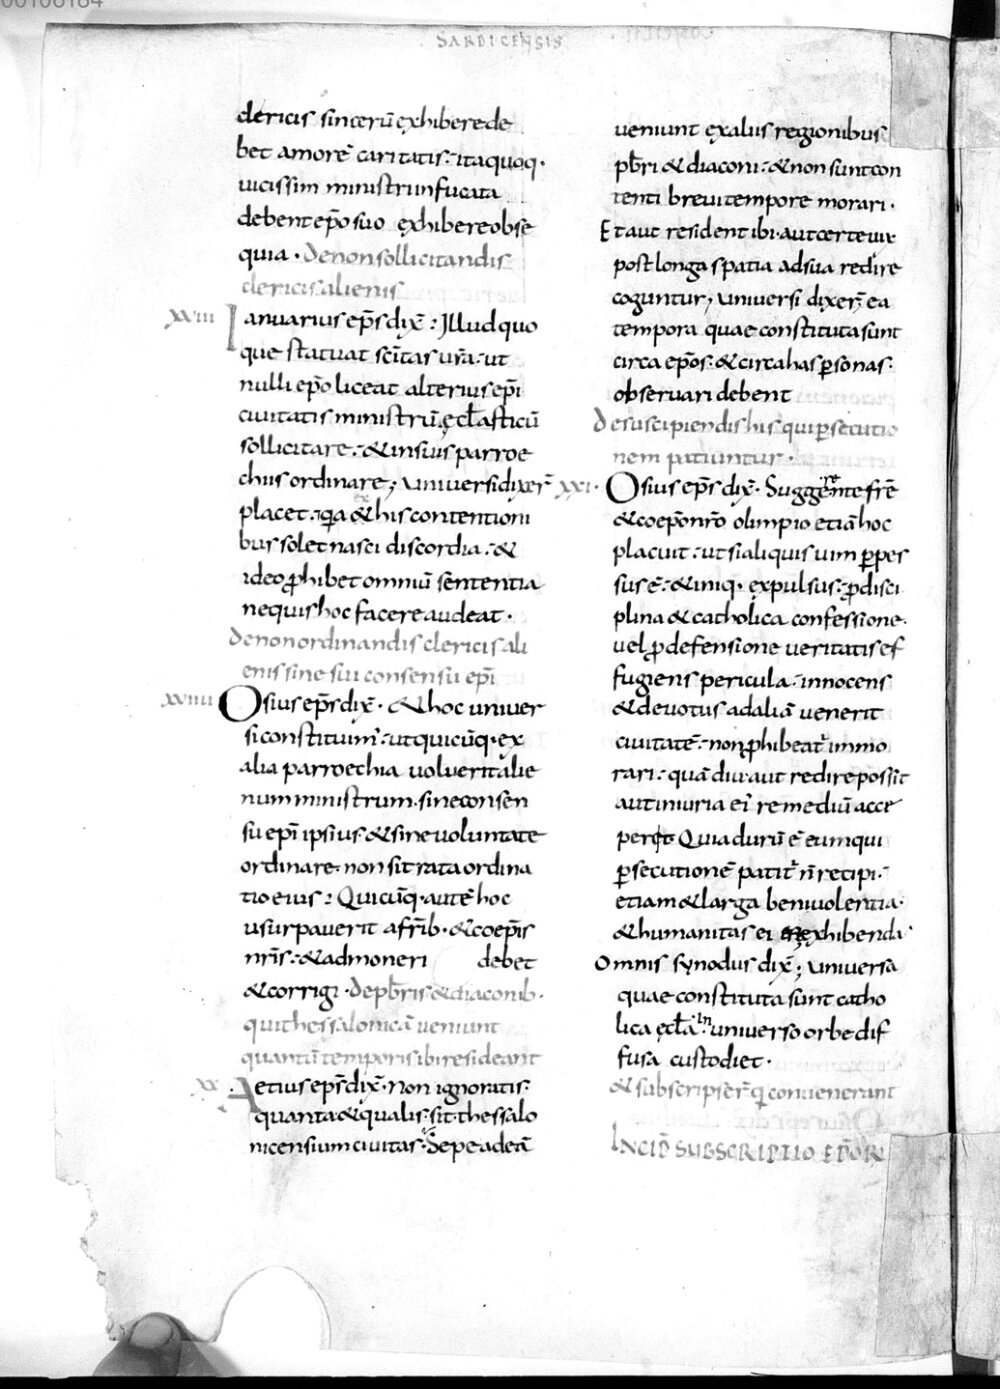 00100184
SARDICENSIS
clericis sincerū exhibere de
bet amorē caritatis: ita quoq·
uicissim ministri infucata
debent ep̄o suo exhibere obse
quia · De non sollicitandis
clericis alienis
xviii Ianuarius ep̄s dix̄ : Illud quo
que statuat sc̄itas ur̄a: ut
nulli ep̄o liceat alterius ep̄i
ciuitatis ministrū ęcl̄asticū
sollicitare: & in suis parroe
chiis ordinare; Uniuersi dixer̄
placet· q̄a ex his contentioni
bus solet nasci discordia: &
ideo ꝓhibet omniū sententia
ne quis hoc facere audeat·
De non ordinandis clericis ali
enis sine sui consensu ep̄i
xviiii Osius ep̄s dix̄· & hoc uniuer
si constituim̄: ut quicūq· ex
alia parroechia uoluerit alie
num ministrum· sine consen
su ep̄i ipsius· & sine uoluntate
ordinare· non sit rata ordina
tio eius: Quicūq· autē hoc
usurpauerit a fr̄ib· & coep̄is
nr̄is· & admoneri debet
& corrigi· De pb̄ris & diaconib·
qui thessalonicā ueniunt
quantū temporis ibi resideant
xx · Aetius ep̄s dix̄· Non ignoratis
quanta & qualis· sit thessalo
nicensium ciuitas· Sepe ad eā
ueniunt ex aliis regionibus
pb̄ri & diaconi: & non sunt con
tenti breui tempore morari·
Et aut resident ibi· aut certe uix
post longa spatia ad sua redire
coguntur; Uniuersi dixer̄ ea
tempora quae constituta sunt
circa ep̄os· & circa has ꝑsonas·
obseruari debent
De suscipiendis his qui ꝑsecutio
nem patiuntur·
xxi· Osius ep̄s dix̄· Suggerente fr̄e
& coep̄o nr̄o olimpio etiā hoc
placuit: ut si aliquis uim ꝑpes
sus ē· & iniq· expulsus· ꝓ disci
plina & catholica confessione·
uel ꝓ defensione ueritatis ef
fugiens pericula· innocens
& deuotus ad aliā uenerit
ciuitatē· non ꝓhibeat̄ immo
rari· quādiu aut redire possit
aut iniuria ei' remediū acce
perit Quia durū ē eum qui
ꝑsecutionē patit̄ n̄ recipi·
etiam & larga beniuolentia·
& humanitas ei exhibenda·
Omnis synodus dix̄; Uniuersa
quae constituta sunt catho
lica ęcl̄a· in uniuerso orbe dif
fusa custodiet·
& subscripser̄ q̄ conuenerant
INCIP̄ SUBSCRIPTIO EP̄ORꝰ